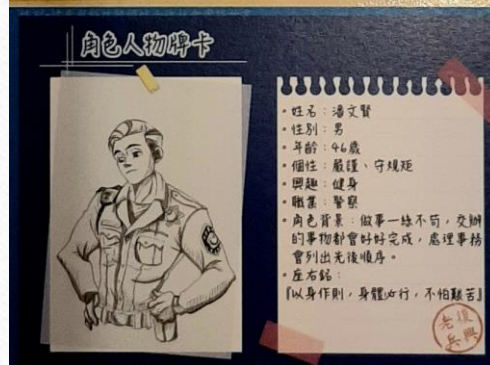 角色人物牌卡
• 姓名：潘文賢
• 性別：男
• 年齡：46歲
• 個性：嚴謹、守規矩
• 興趣：健身
• 職業：警察
• 角色背景：做事一絲不苟，交辦
的事物都會好好完成，處理事務
會列出先後順序。
• 座右銘：
『以身作則，身體力行，不怕艱苦』
老復
兵興